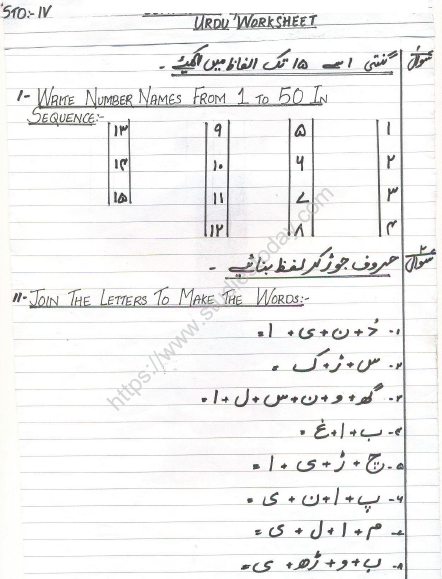 STD:- IV
URDU WORKSHEET
سوال ۱
گنتی ۱ سے ۱۵ تک الفاظ میں لکھیئے ۔
I- WRITE NUMBER NAMES FROM 1 TO 50 IN
SEQUENCE:-
۱ ۵ ۹ ۱۳
۲ ۶ ۱۰ ۱۴
۳ ۷ ۱۱ ۱۵
۴ ۸ ۱۲
سوال ۲
حروف جوڑ کر لفظ بنائیے ۔
II- JOIN THE LETTERS TO MAKE THE WORDS:-
۱- دُ + ن + ی + ا =
۲- س + ڑ + ک =
۳- گھ + و + ن + س + ل + ا =
۴- ب + ا + غ =
۵- چ + ڑ + ی + ا =
۶- پ + ا + ن + ی =
۷- م + ا + ل + ی =
۸- ب + و + ڑھ + ی =
https://www.studiestoday.com